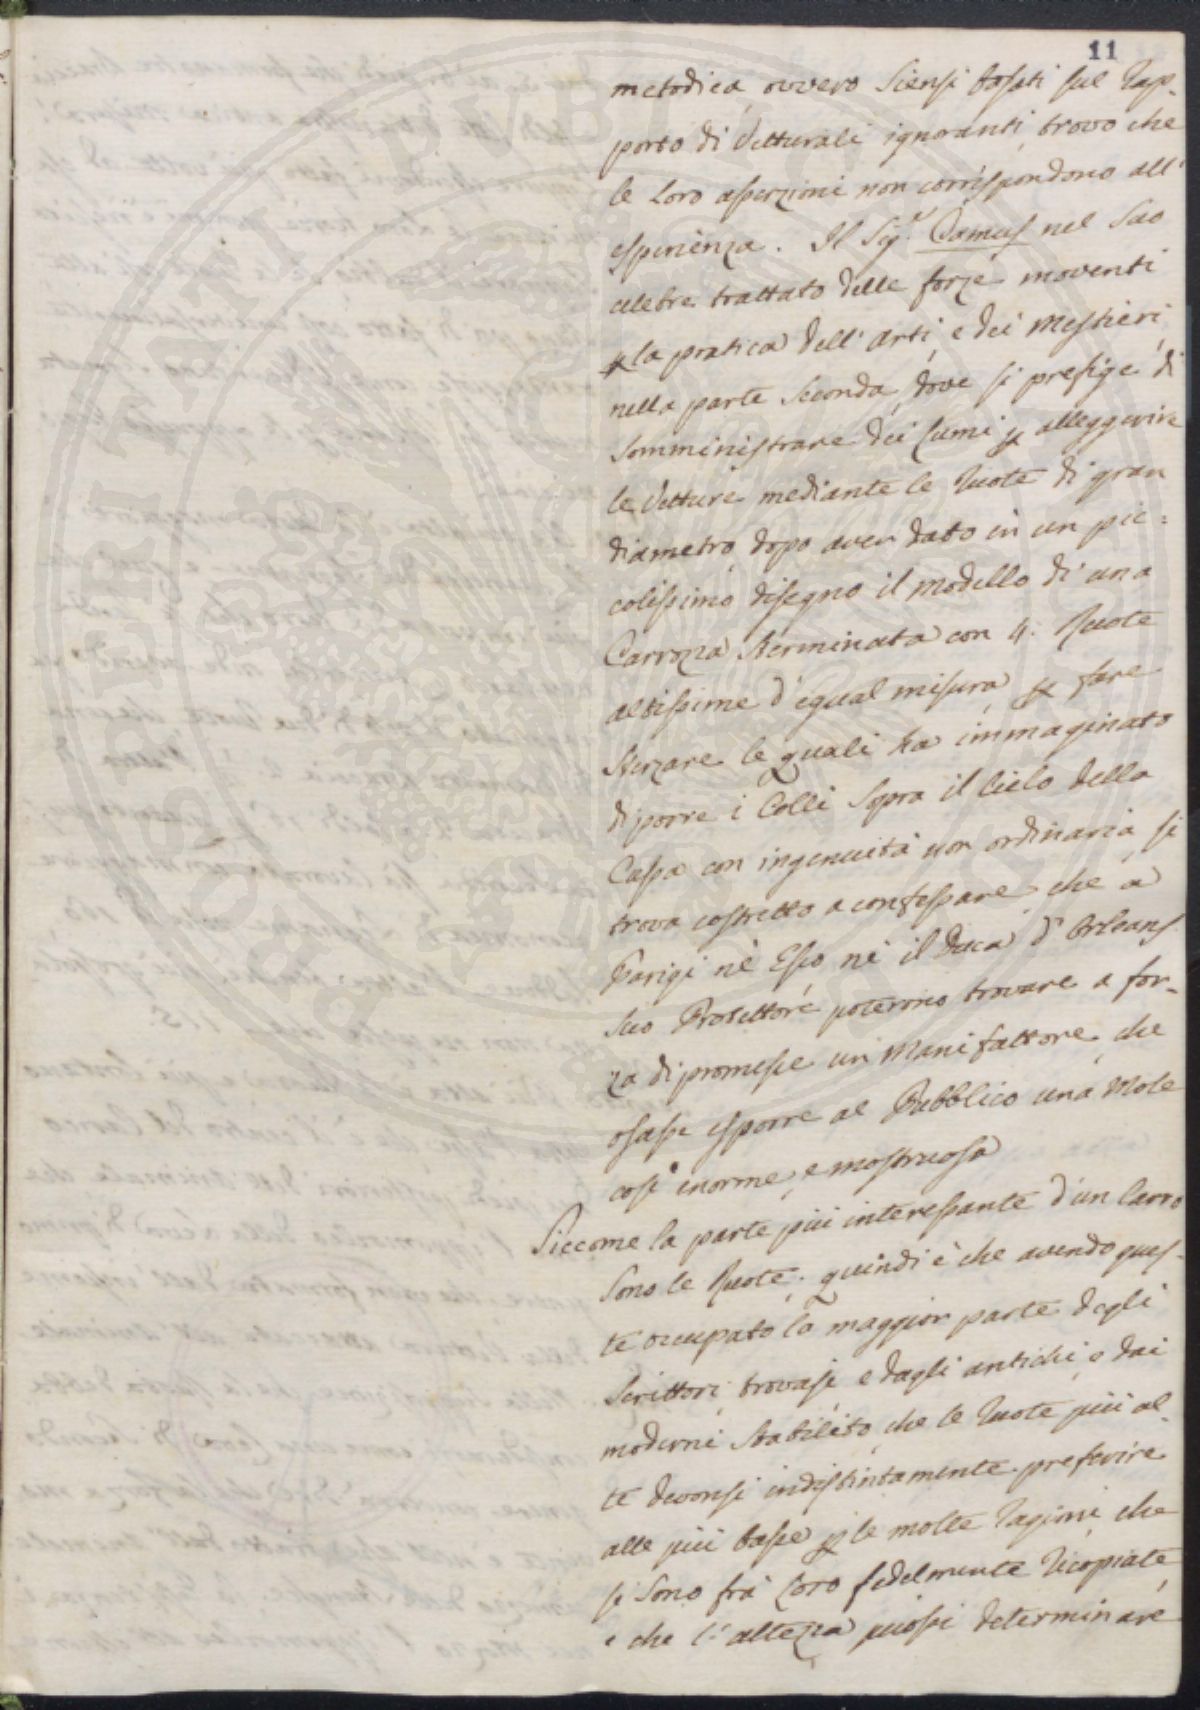 11
metodica, ovvero siensi basati sul rap-
porto di Vetturali ignoranti, trovo che
le loro aserzioni non corrispondono all'
esperienza. Il Sig.r Camus nel suo
celebre trattato delle forze moventi
p la pratica dell'arti, e dei Mestieri,
nella parte seconda, dove si prefige di
somministrare dei lumi p alleggerire
le Vetture mediante le Ruote di gran
diametro, dopo aver dato in un pic=
colissimo disegno il modello di una
Carrozza sterminata con 4: Ruote
altissime d'egual misura, p fare
sterzare le quali ha immaginato
di porre i Colli sopra il Cielo della
Cassa con ingenuità non ordinaria, si
trova costretto a confessare, che a
Parigi nè Esso, nè il Duca d'Orleans
suo Protettore poterono trovare a for-
za di promesse un Manifattore, che
osasse esporre al Pubblico una Mole
così enorme, e mostruosa
Siccome la parte più interessante d'un Carro
sono le Ruote, quindi è che avendo ques-
te occupato la maggior parte degli
Scrittori, trovasi e dagli antichi, e dai
moderni stabilito, che le Ruote più al-
te devonsi indistintamente preferire
alle più basse p le molte ragioni, che
si sono frà loro fedelmente ricopiate,
e che l'altezza puossi determinare